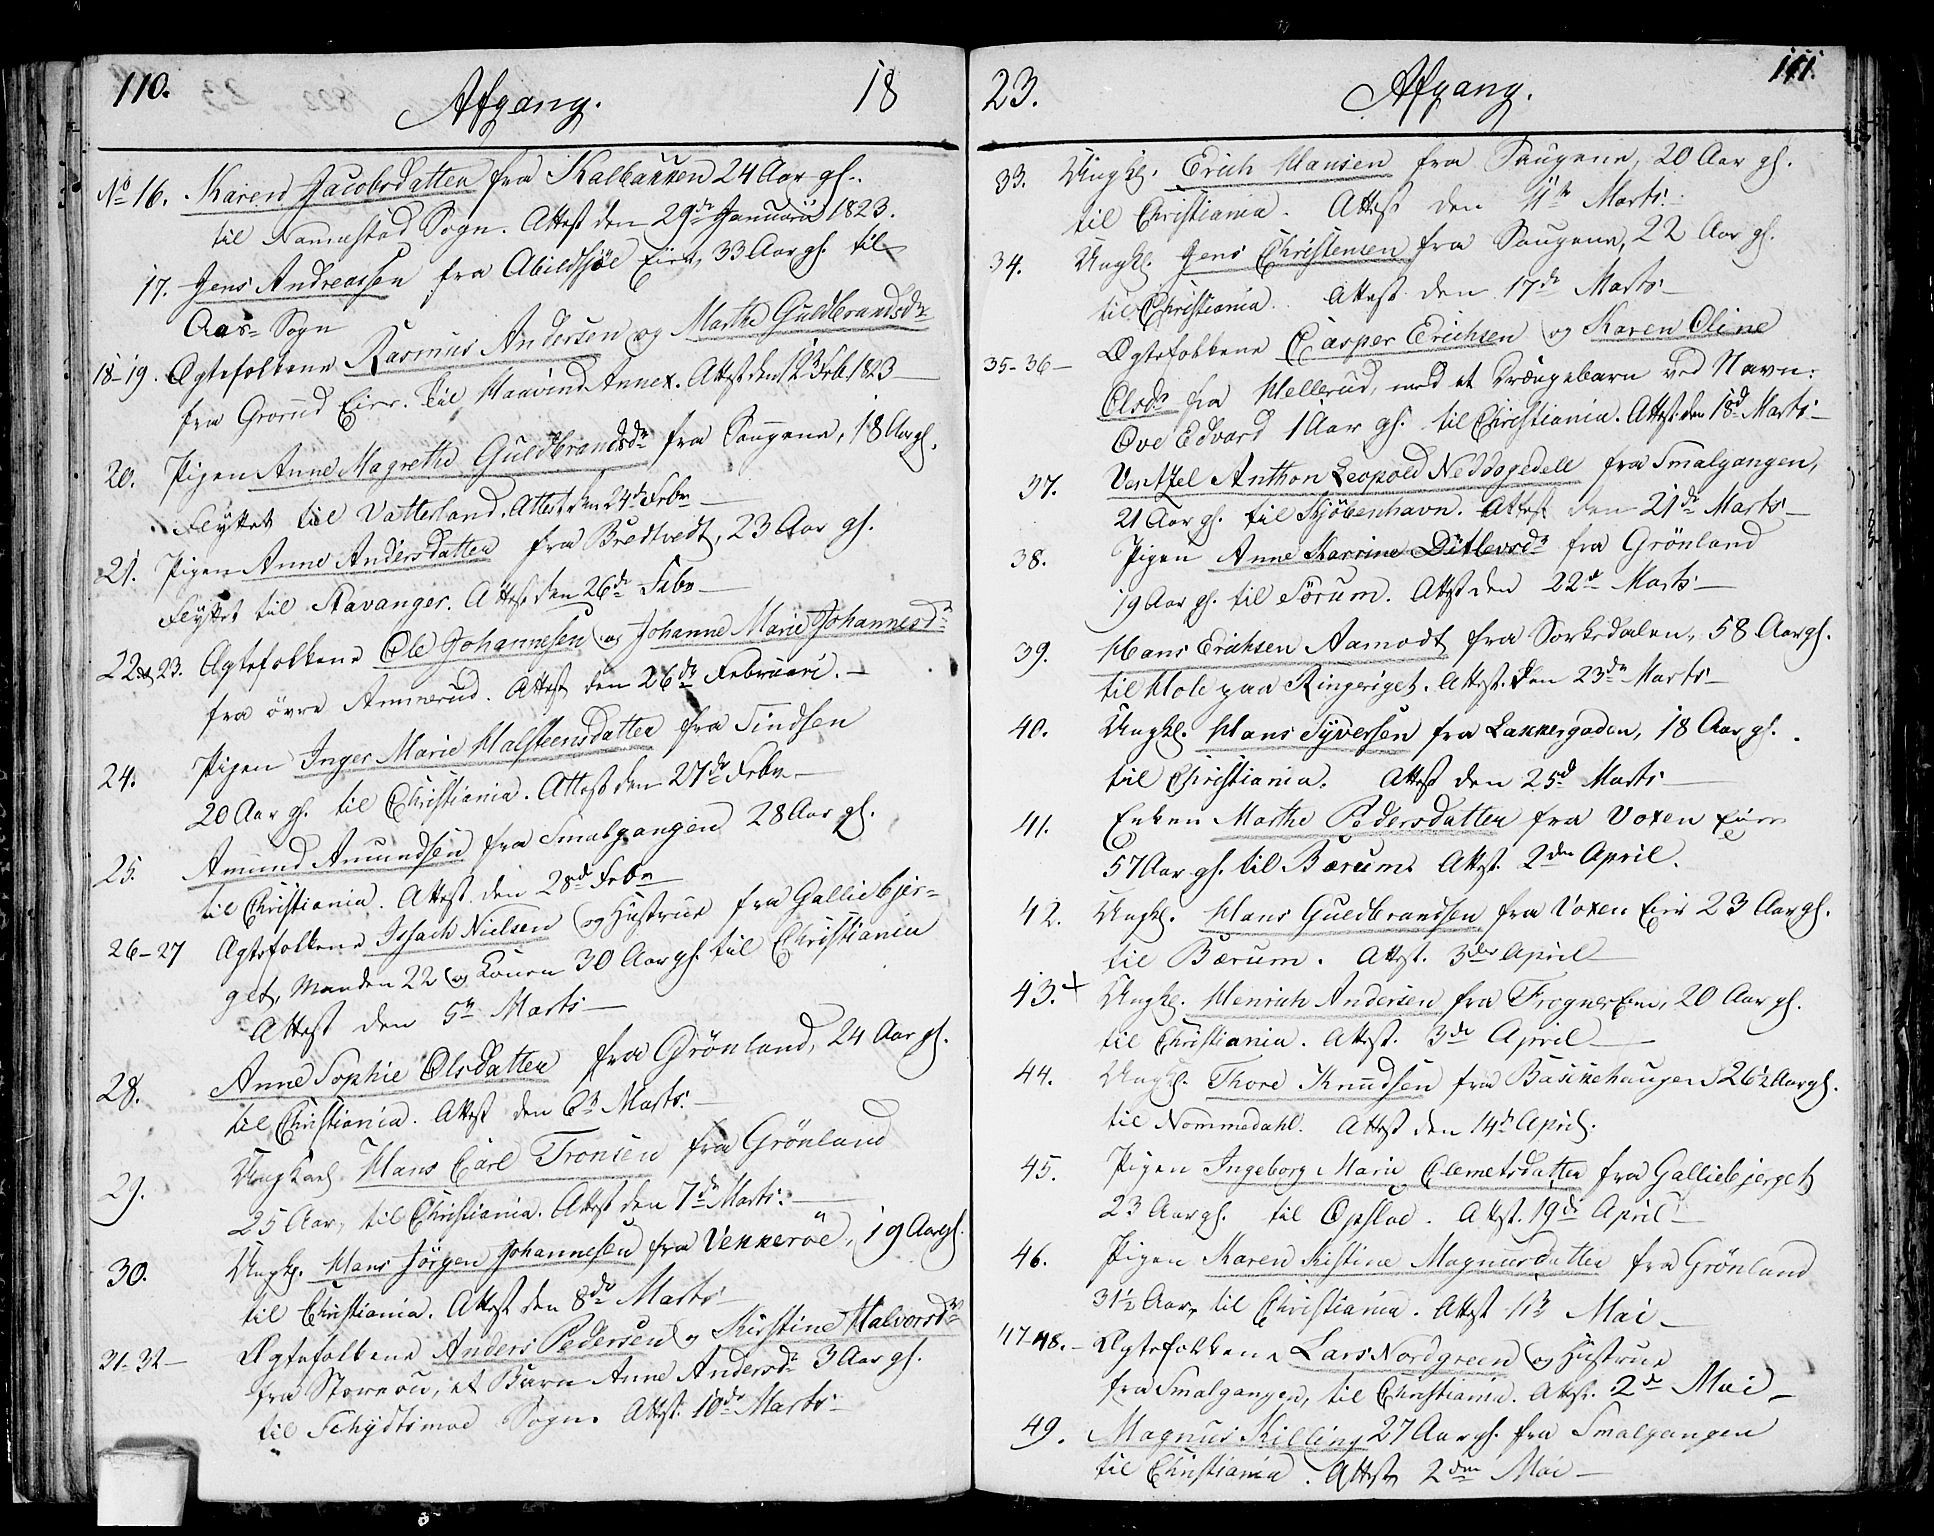 110. Afgang. 18
No 16. Karen Jacobsdatter fra Kalbakken 24 Aar gl.
til Nannestad Sogn. Attest den 29de Januarii 1823.
17. Jens Andreassen fra Abildsøe Eier, 33 Aar gl. til
Aas-Sogn
18-19. Ægtefolkene Rasmus Andersen og Marthe Guldbrandsdr
fra Grorud Eier. til Haavind Annex. Attest den 12 Feb 1823
20. Pigen Anne Magrethe Guldbrandsdr fra Saugene, 18 Aar gl.
Flyttet til Vatterland. Attest den 24de Febr
21. Pigen Anne Andersdatter fra Bredtvedt, 23 Aar gl.
Flyttet til Stavanger. Attest den 26de Febr
22 & 23. Ægtefolkene Ole Johannesen og Johanne Marie Johannesdr
fra øvre Ammerud. Attest den 26de Februari.
24. Pigen Inger Marie Halsteensdatter fra Tindsen
20 Aar gl. til Christiania. Attest den 27de Febr
25. Amund Amundsen fra Smalgangen 28 Aar gl.
til Christiania. Attest den 28d Febr
26-27 Ægtefolkene Issach Nielsen og Hustrue fra Galliebjer=
get, Manden 22 og Konen 30 Aar gl. til Christiania
Attest den 5te Marts
28. Anne Sophie Olsdatter fra Grönland, 24 Aar gl.
til Christiania. Attest den 6te Marts.
29. Ungkarl Hans Carl Tronsen fra Grönland
25 Aar, til Christiania. Attest den 7de Marts.
30. Ungk. Hans Jörgen Johannesen fra Vekkeröe, 19 Aar gl.
til Christiania. Attest den 8de Marts
31-32 Ægtefolkene Anders Pedersen og Kirstine Halvorsdr
fra Storøen, et Barn Anne Andersdr 3 Aar gl.
til Schydtsmoe Sogn. Attest. 10de Marts
23. Afgang. 111.
33. Ungk. Erich Hansen fra Saugene, 20 Aar gl.
til Christiania. Attest den 11te Marts
34. Ungk. Jens Christensen fra Saugene, 22 Aar gl.
til Christiania. Attest den 17de Marts
35-36 Ægtefolkene Casper Erichsen og Karen Oline
Olsdr fra Hellerud, med et Drængebarn ved Navn:
Ove Edvard 1 Aar gl. til Christiania. Attest den 18d Marts
37. Anthon Leopold fra Smalgangen,
21 Aar gl. til Kjöbenhavn. Attest den 21de Marts
38. Pigen Anne Karrine Ditlevsdr fra Grönland
19 Aar gl. til Sörum. Attest den 22d Marts
39. Hans Erichsen Aamodt fra Sorkedalen, 58 Aar gl.
til Hole paa Ringeriget. Attest. den 23de Marts
40. Ungk. Hans Syversen fra Lakkergaden, 18 Aar gl.
til Christiania. Attest den 25d Marts
41. Enken Marthe Pedersdatter fra Voxen Eier
57 Aar gl. til Bærum. Attest. 2den April.
42. Ungk. Hans Guldbrandsen fra Voxen Eier 23 Aar gl.
til Bærum. Attest. 3die April
43. + Ungk. Henrich Andersen fra Frogner Eier, 20 Aar gl.
til Christiania. Attest. 3de April
44. Ungk. Thore Knudsen fra Bakkehaugen 26½ Aar gl.
til Nommedahl. Attest den 14de April.
45. Pigen Ingeborg Marie Clemetsdatter fra Galliebjerget
23 Aar gl. til Opsloe. Attest. 19de April
46. Pigen Karen Kistine Magnusdatter fra Grönland
31½ Aar, til Christiania. Attest 1te Mai
47-48. Ægtefolkene Lars Nordgreen og Hustrue
fra Smalgangen, til Christiania. Attest. 2de Mai
49. Magnus Killing 27 Aar gl. fra Smalgangen
til Christiania. Attest 2den Mai